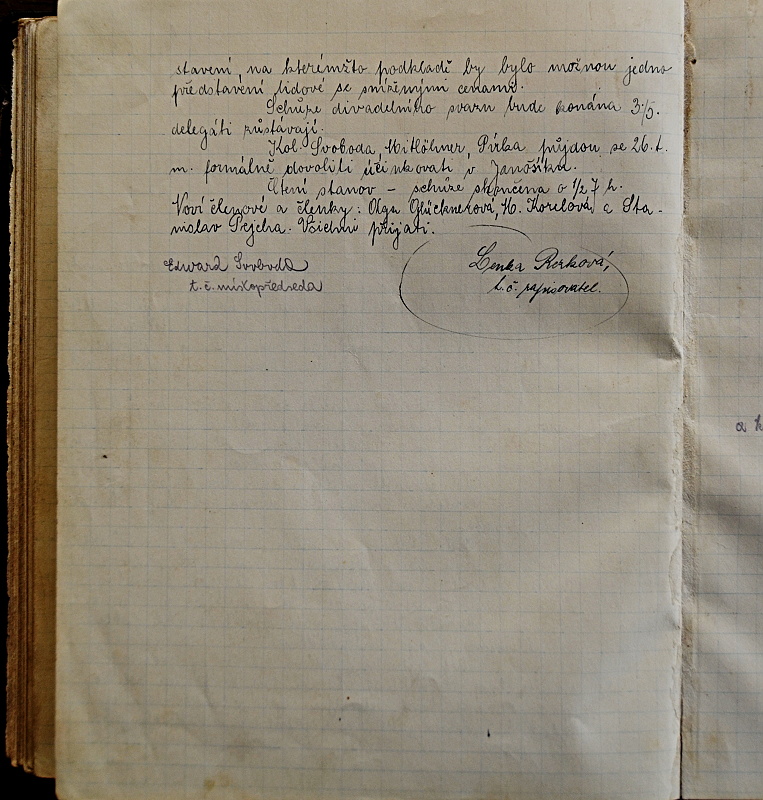 stavení, na kterémžto podkladě by bylo možnou jedno
představení lidové se sníženými cenami.
Schůze divadelního svazu bude konána 3./5.
delegáti zůstávají.
Kol. Svoboda, Mitlöhner, Pírka půjdou se 26. t.
m. formálně dovoliti účinkovati v Janošíku.
Čtení stanov – schůze skončena o 1/2 7 h.
Noví členové a členky: Olga Glücknerová, M. Korelová a Sta-
nislav Pejcha. Všichni přijati.
Edward Svoboda
t. č. místopředseda
Lenka
t. č. zapisovatel.
a k